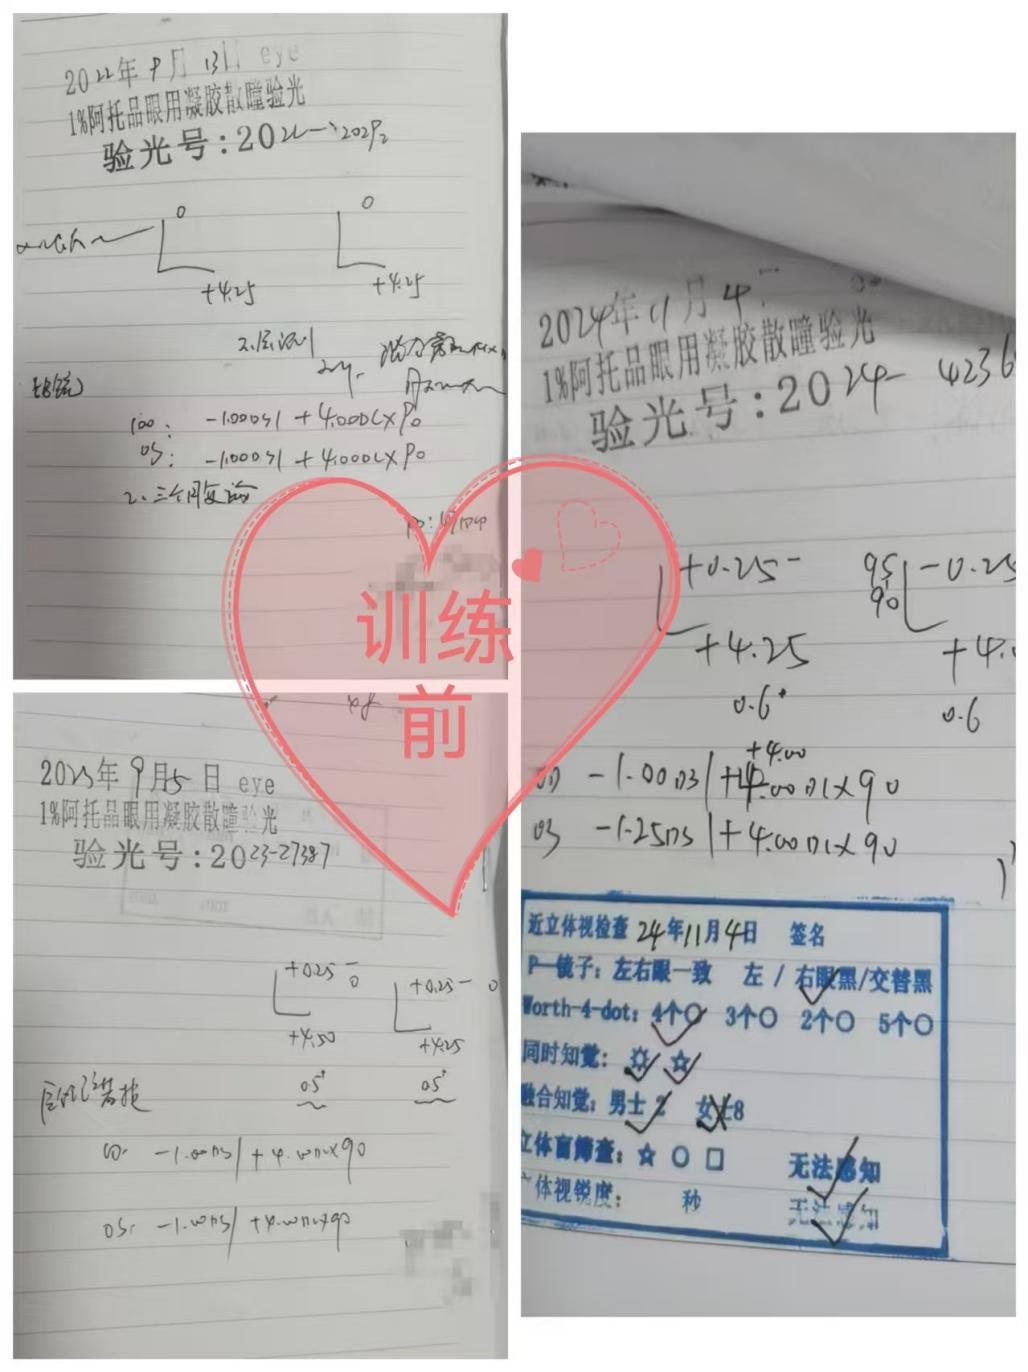 2022年9月13日 eye
1%阿托品眼用凝胶散瞳验光
验光号:2022-
0 0
+4.25 +4.25
-1.00DS/+4.00DC×90
OS: -1.00DS/+4.00DC×90
2、三个月复验
2023年9月5日 eye
1%阿托品眼用凝胶散瞳验光
验光号:2023-27387
+0.25 0 +0.25 0
+4.50 +4.25
0.5⁺ 0.5⁺
OD: -1.00DS/+4.00DC×90
OS: -1.00DS/+4.00DC×90
2024年11月4
1%阿托品眼用凝胶散瞳验光
验光号:2024-4236
+0.25 95 -0.25
90
+4.25 +4.
0.6⁺ 0.6
+4.00
OD -1.00DS/+4.00DC×90
OS -1.25DS/+4.00DC×90
近立体视检查 24年11月4日 签名
P—镜子:左右眼一致 左/右眼黑/交替黑
Worth-4-dot: 4个○ 3个○ 2个○ 5个○
同时知觉: ☆
融合知觉: 男士2 女士8
立体盲筛查: ☆ ○ □ 无法感知
体视锐度: 秒 无法感知
训练
前